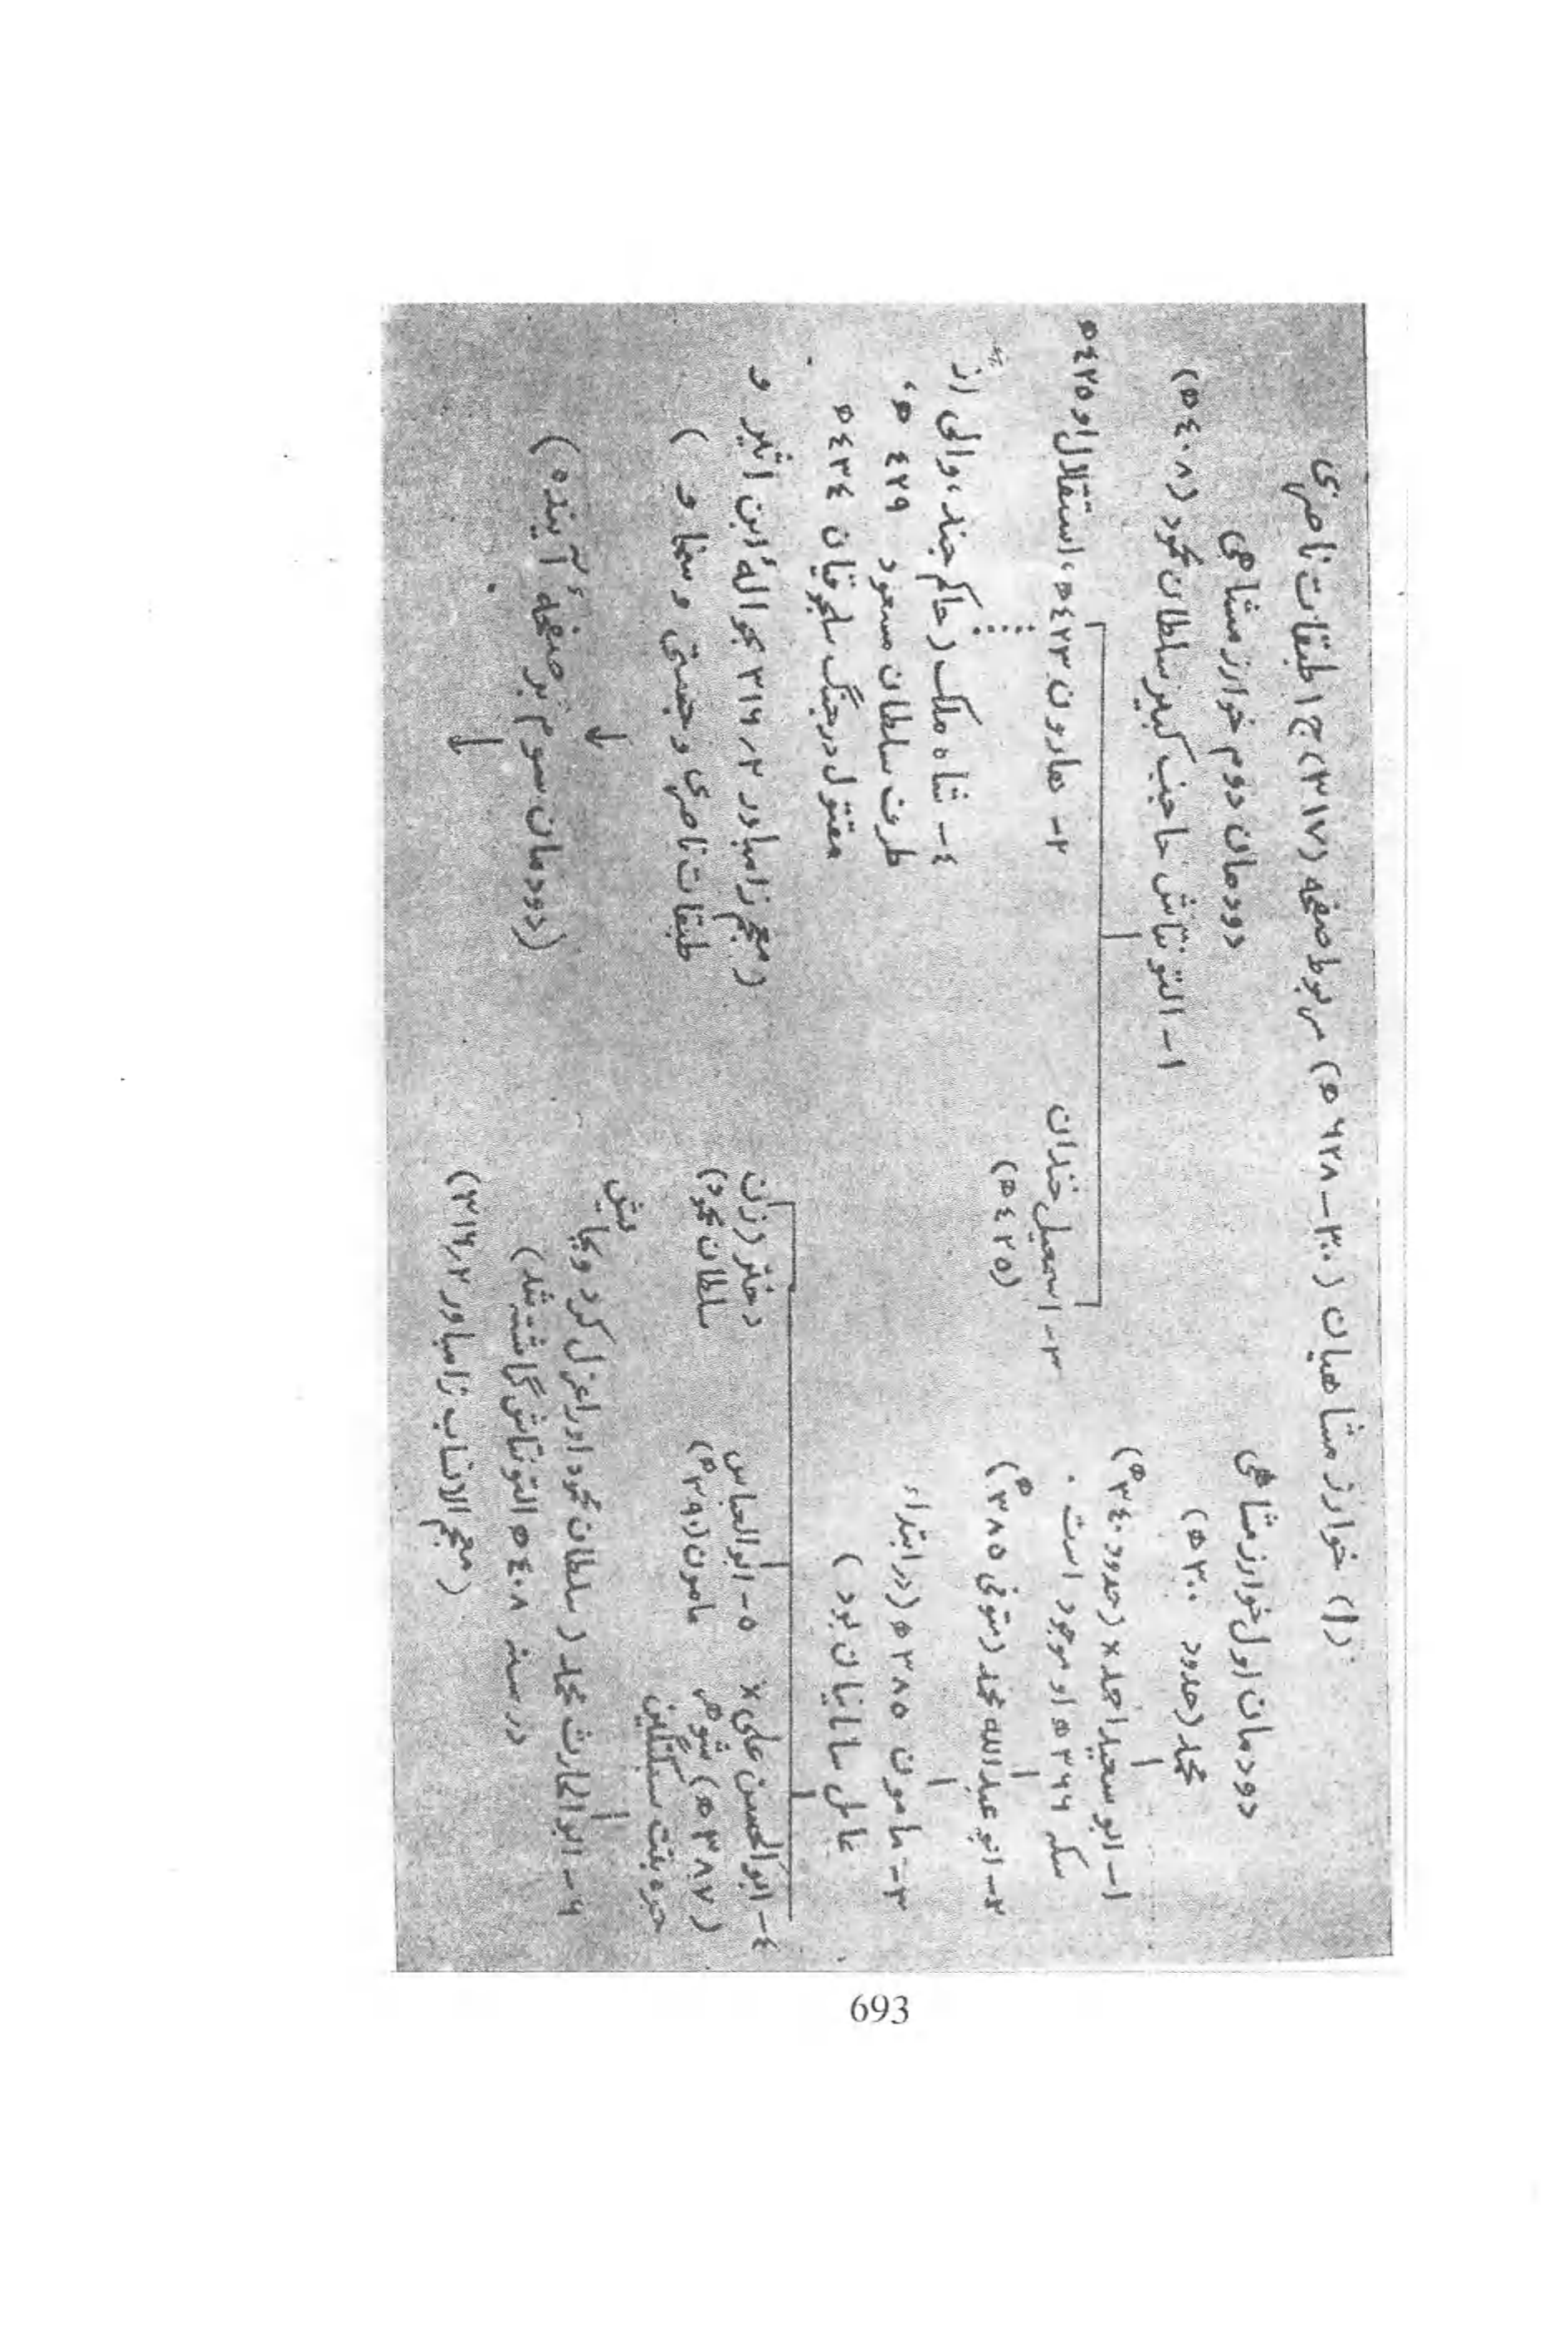 (۱) خوارزمشاهیان (۳۰۰ – ۶۲۸ ھ) مربوط صفحه (۳۱۷) ج ۱ طبقات ناصری
دودمان اول خوارزمشاهی
محمد (حدود ۳۰۰ ھ)
۱- ابو سعید احمد × (حدود ۳٤۰ ھ)
سکه ۳۶۶ ھ او موجود است .
۲- ابو عبدالله محمد (متوفی ۳۸۵ ھ)
۳- مامون ۳۸۵ ھ (در ابتداء
عامل سامانیان بود )
٤- ابوالحسن علی ×
(۳۸۷ ھ) شوهر
حره بنت سبکتگین
۵- ابوالعباس
مامون (۳۹۰ ھ)
دختر (زن
سلطان محمود)
۶- ابوالحارث محمد (سلطان محمود او را عزل کرد و بجایش
در سنه ٤۰۸ ھ التونتاش گماشته شد)
( معجم الانساب زامباور ۲ر۳۱۶)
دودمان دوم خوارزمشاهی
۱- التونتاش حاجب کبیر سلطان محمود (٤۰۸ ھ)
۲- هارون ٤۲۳ ھ، استقلال او ٤۲۵ ھ
۳- اسمعیل خندان
(٤۲۵ ھ)
٤- شاه ملک (حاکم جند، والی از
طرف سلطان مسعود ٤۲۹ ھ،
مقتول در جنگ سلجوقیان ٤۳٤ ھ
(معجم زامباور ۲ر۳۱۶ بحوالهٔ ابن اثیر و
طبقات ناصری و و سخاو )
(دودمان سوم بر صفحهٔ آینده )
693